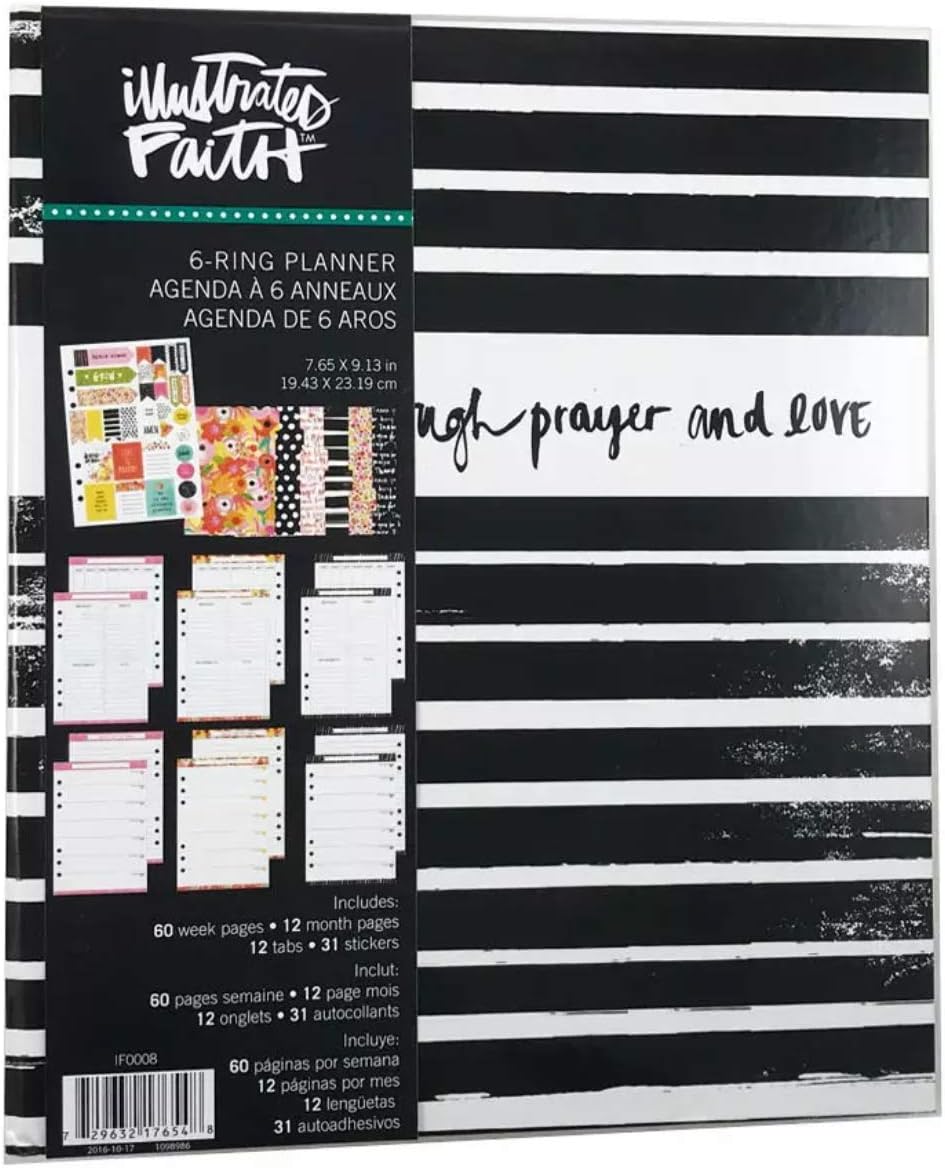 illustrated
Faith™
6-RING PLANNER
AGENDA À 6 ANNEAUX
AGENDA DE 6 AROS
7.65 X 9.13 in
19.43 X 23.19 cm
prayer and LOVE
Includes:
60 week pages • 12 month pages
12 tabs • 31 stickers
Inclut:
60 pages semaine • 12 page mois
12 onglets • 31 autocollants
Incluye:
60 páginas por semana
12 páginas por mes
12 lengüetas
31 autoadhesivos
IF0008
7 29632 17654 8
2016-10-17 1098986